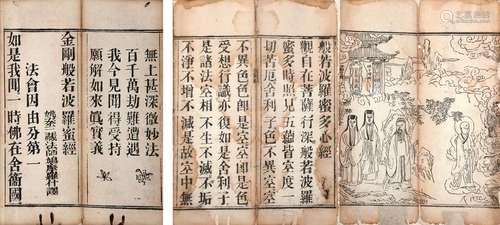 無上甚深微妙法
百千萬劫難遭遇
我今見聞得受持
願解如來眞實義
金剛般若波羅蜜經
法會因由分第一
如是我聞一時佛在舍衛國
般若波羅蜜多心經
觀自在菩薩行深般若波羅
蜜多時照見五蘊皆空度一
切苦厄舍利子色不異空空
不異色色即是空空即是色
受想行識亦復如是舍利子
是諸法空相不生不滅不垢
不淨不增不減是故空中無